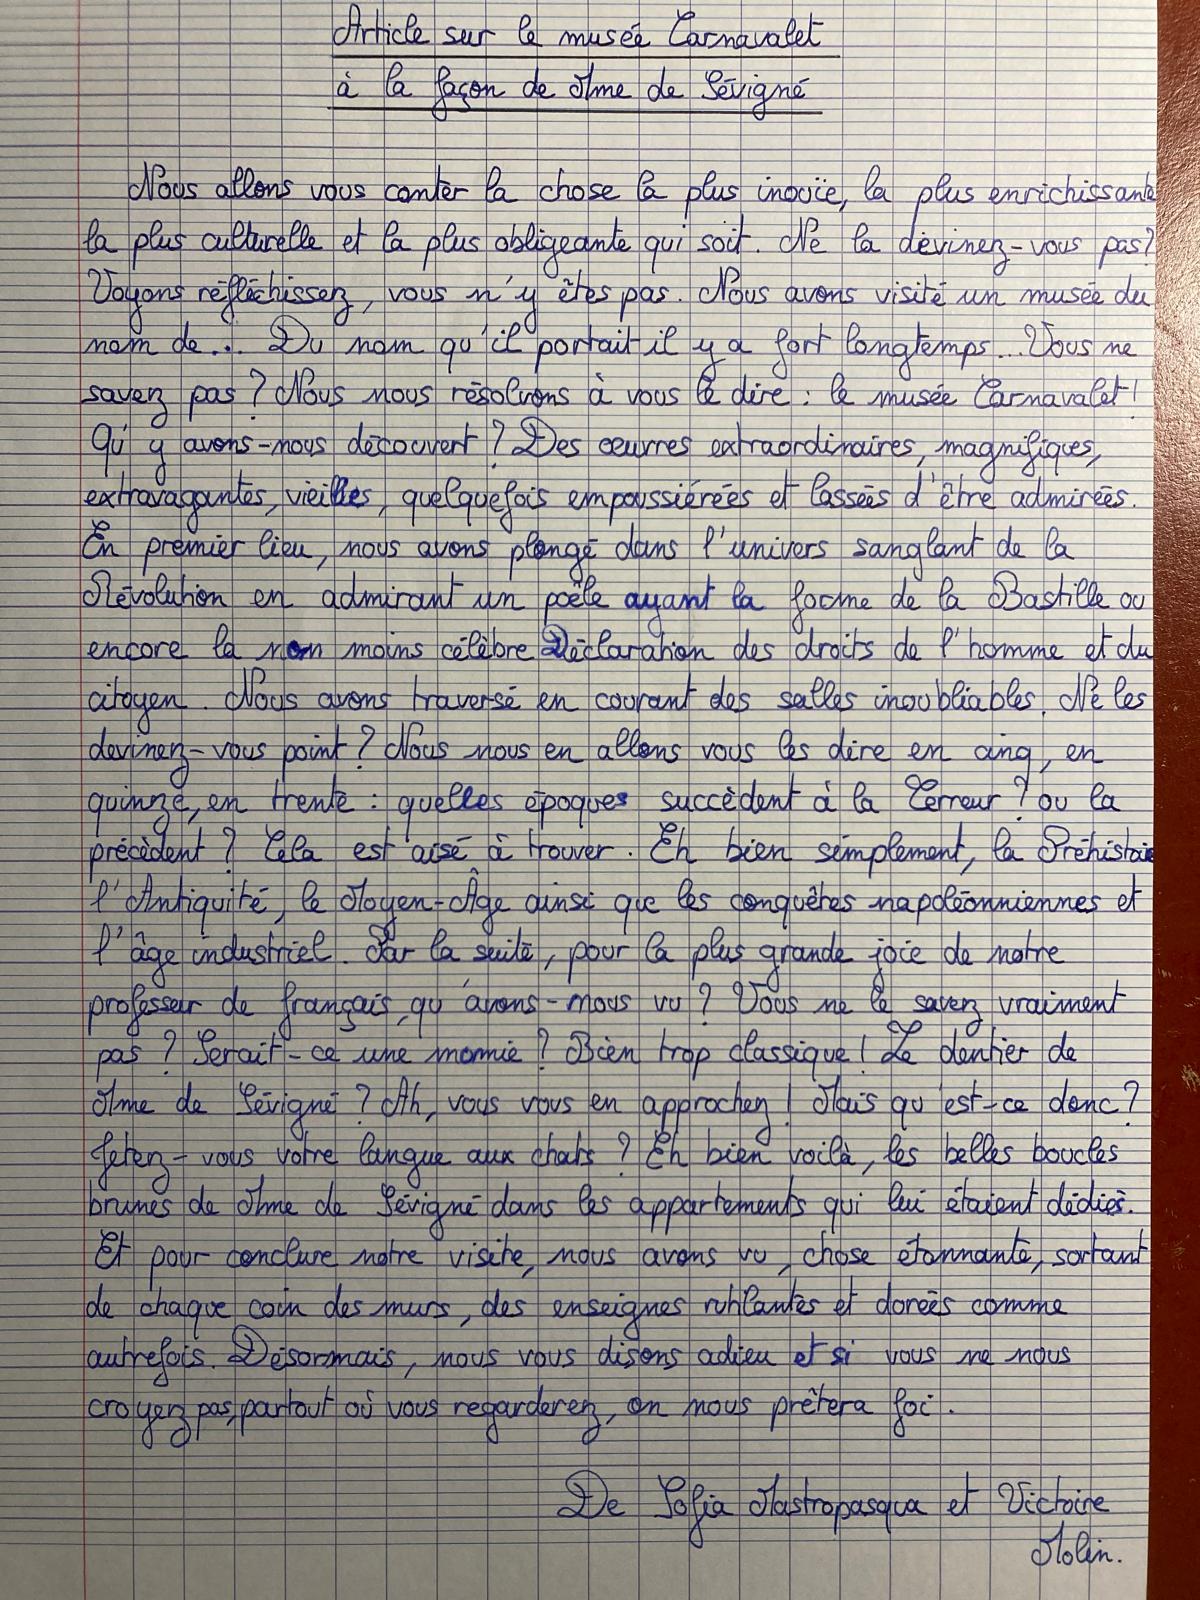 Article sur le musée Carnavalet
à la façon de Mme de Sévigné
Nous allons vous conter la chose la plus inouïe, la plus enrichissante
la plus culturelle et la plus obligeante qui soit. Ne la devinez-vous pas?
Voyons réfléchissez, vous n'y êtes pas. Nous avons visité un musée du
nom de... Du nom qu'il portait il y a fort longtemps... Vous ne
savez pas? Nous nous résolvons à vous le dire: le musée Carnavalet!
Qu'y avons-nous découvert? Des œuvres extraordinaires, magnifiques,
extravagantes, vieilles, quelquefois empoussiérées et lassées d'être admirées.
En premier lieu, nous avons plongé dans l'univers sanglant de la
Révolution en admirant un poêle ayant la forme de la Bastille ou
encore la non moins célèbre Déclaration des droits de l'homme et du
citoyen. Nous avons traversé en courant des salles inoubliables. Ne les
devinez-vous point? Nous nous en allons vous les dire en cinq, en
quinze, en trente: quelles époques succèdent à la Terreur? ou la
précèdent? Cela est aisé à trouver. Eh bien simplement, la Préhistoire
l'Antiquité, le Moyen-Âge ainsi que les conquêtes napoléonniennes et
l'âge industriel. Par la suite, pour la plus grande joie de notre
professeur de français, qu'avons-nous vu? Vous ne le savez vraiment
pas? Serait-ce une momie? Bien trop classique! Le dentier de
Mme de Sévigné? Ah, vous vous en approchez! Mais qu'est-ce donc?
Jetez-vous votre langue aux chats? Eh bien voilà, les belles boucles
brunes de Mme de Sévigné dans les appartements qui lui étaient dédiés.
Et pour conclure notre visite, nous avons vu, chose étonnante, sortant
de chaque coin des murs, des enseignes rutilantes et dorées comme
autrefois. Désormais, nous vous disons adieu et si vous ne nous
croyez pas, partout où vous regarderez, on nous prêtera foi.
De Sofia Mastropasqua et Victoire
Molin.